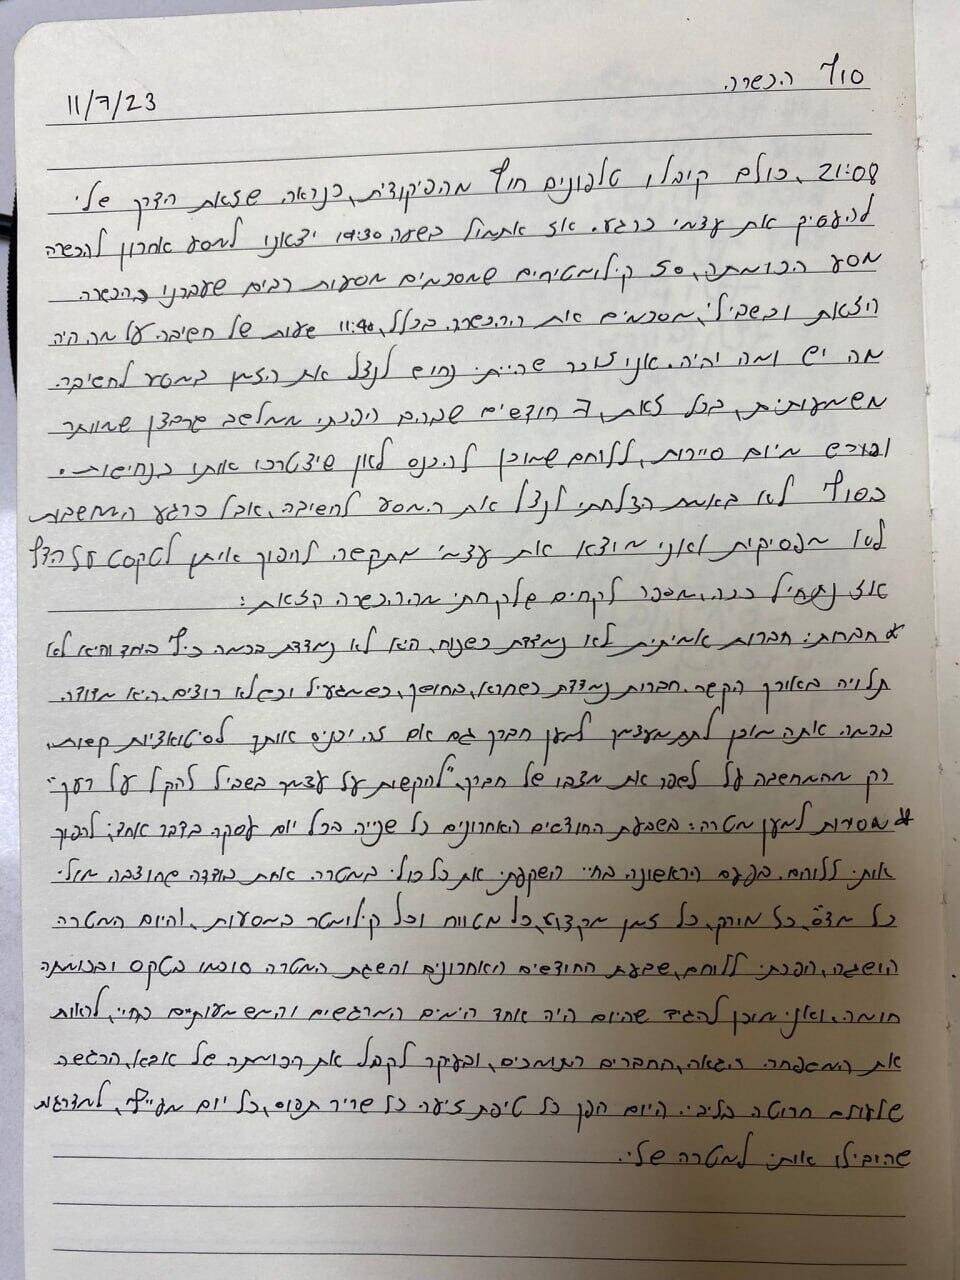 סוף הכשרה.
11/7/23
21:08, כולם קיבלו טלפונים חוץ מהפיקודית, כנראה שזאת הדרך שלי
להעסיק את עצמי כרגע. אז אתמול בשעה 19:30 יצאנו למסע אחרון להכשרה
מסע הכומתה, 50 קילומטירים שמסכמים מסעות רבים שעברנו בהכשרה
הזאת ובשבילי, מסכמים את ההכשרה בכלל, 11:40 שעות של חשיבה על מה היה
מה יש ומה יהיה. אני זוכר שהייתי נחוש לנצל את הזמן במסע לחשיבה
משמעותית, בכל זאת, 7 חודשים שבהם הפכתי ממלשב
מיום סיירות, ללוחם שמוכן להכנס לאן שיצטרכו אותו בנחישות.
בסוף לא באמת הצלחתי לנצל את המסע לחשיבה, אבל כרגע המחשבות
לא מפסיקות ואני מוצא את עצמי מתקשה להפוך אותן לטקסט על הדף
אז נתחיל ככה, מספר לקחים שלקחתי מההכשרה הזאת:
* חברות: חברות אמיתית לא נמדדת כשנוח, היא לא נמדדת בכמה כיף ביחד והיא לא
תלויה באורך הקשר. חברות נמדדת כשחרא, בחושך, כשמגעיל וכשלא רוצים. היא מדודה
בכמה אתה מוכן לתת מעצמך למען חברך גם אם זה יכניס אותך לסיטואציות קשות,
רק מהמחשבה על לשפר את מצבו של חברך. "להקשות על עצמך בשביל להקל על רעך"
* מסירות למען מטרה: בשבעת החודשים האחרונים כל שנייה בכל יום עסקה בדבר אחד: להפוך
אותי ללוחם. בפעם הראשונה בחיי השקעתי את כל כולי במטרה אחת בודדה שהוצבה מולי
כל מדס, כל מורק, כל זמן מקצוע, כל מטווח וכל קילומטר במסעות. והיום המטרה
הושגה, הפכתי ללוחם, שבעת החודשים האחרונים והשגת המטרה סוכמו בטקס ובכומתה
חומה. ואני מוכן להגיד שהיום היה אחד הימים המרגשים והמשמעותיים בחיי, לראות
את המשפחה הגאה, החברים התומכים, ובעיקר לקבל את הכומתה של אבא, הרגשה
שלעולם חרוטה בליבי. היום הפך כל טיפת זיעה כל שריר תפוס, כל יום מעייף, למדרגות
שהובילו אותי למטרה שלי.